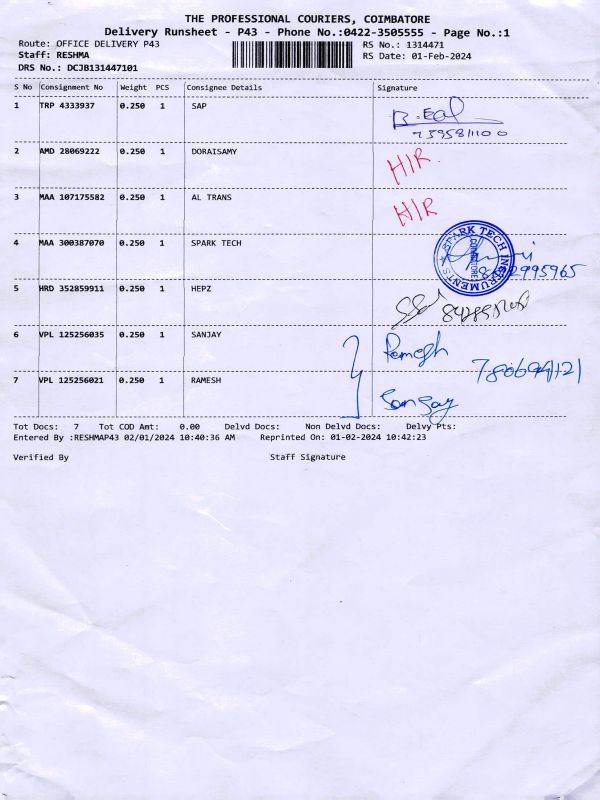 THE PROFESSIONAL COURIERS, COIMBATORE
Delivery Runsheet - P43 - Phone No.:0422-3505555 - Page No.:1
Route: OFFICE DELIVERY P43
RS No.: 1314471
Staff: RESHMA
RS Date: 01-Feb-2024
DRS No.: DCJB131447101
S No Consignment No Weight PCS Consignee Details Signature
1 TRP 4333937 0.250 1 SAP
2 AMD 28069222 0.250 1 DORAISAMY H/R
3 MAA 107175582 0.250 1 AL TRANS H/R
4 MAA 300387070 0.250 1 SPARK TECH
SPARK TECH INSTRUMENTS
COIMBATORE
5 HRD 352859911 0.250 1 HEPZ
6 VPL 125256035 0.250 1 SANJAY Ramesh
7 VPL 125256021 0.250 1 RAMESH Sanjay
Tot Docs: 7 Tot COD Amt: 0.00 Delvd Docs: Non Delvd Docs: Delvy Pts:
Entered By :RESHMAP43 02/01/2024 10:40:36 AM Reprinted On: 01-02-2024 10:42:23
Verified By Staff Signature